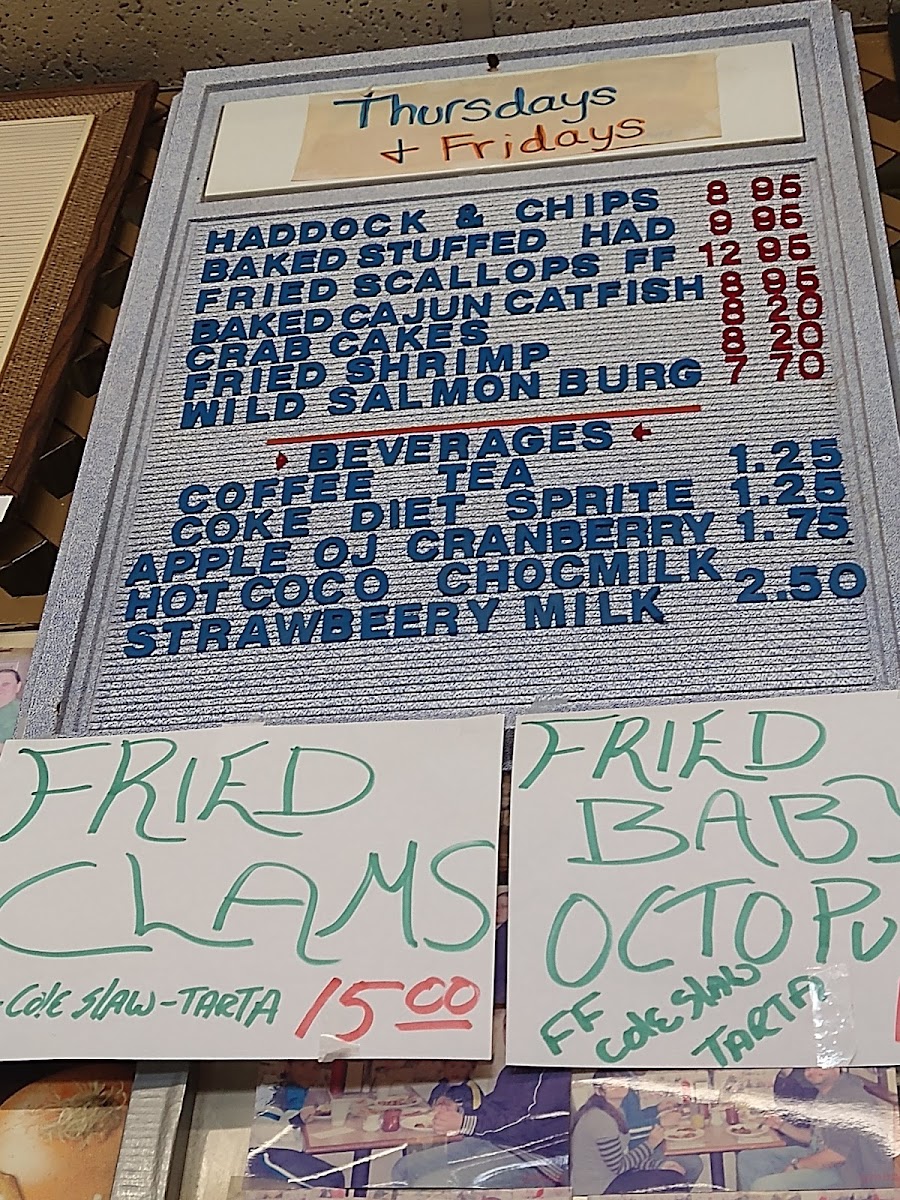 Thursdays
+ Fridays
HADDOCK & CHIPS 8 95
BAKED STUFFED HAD 9 95
FRIED SCALLOPS FF 12 95
BAKED CAJUN CATFISH 8 95
CRAB CAKES 8 20
FRIED SHRIMP 8 20
WILD SALMON BURG 7 70
BEVERAGES
COFFEE TEA 1.25
COKE DIET SPRITE 1.25
APPLE OJ CRANBERRY 1.75
HOT COCO CHOCMILK 2.50
STRAWBEERY MILK
FRIED
CLAMS
-Cole SLAW-TARTA 15.00
FRIED
BABY
OCTOPU
FF Cole SLAW
TARTA